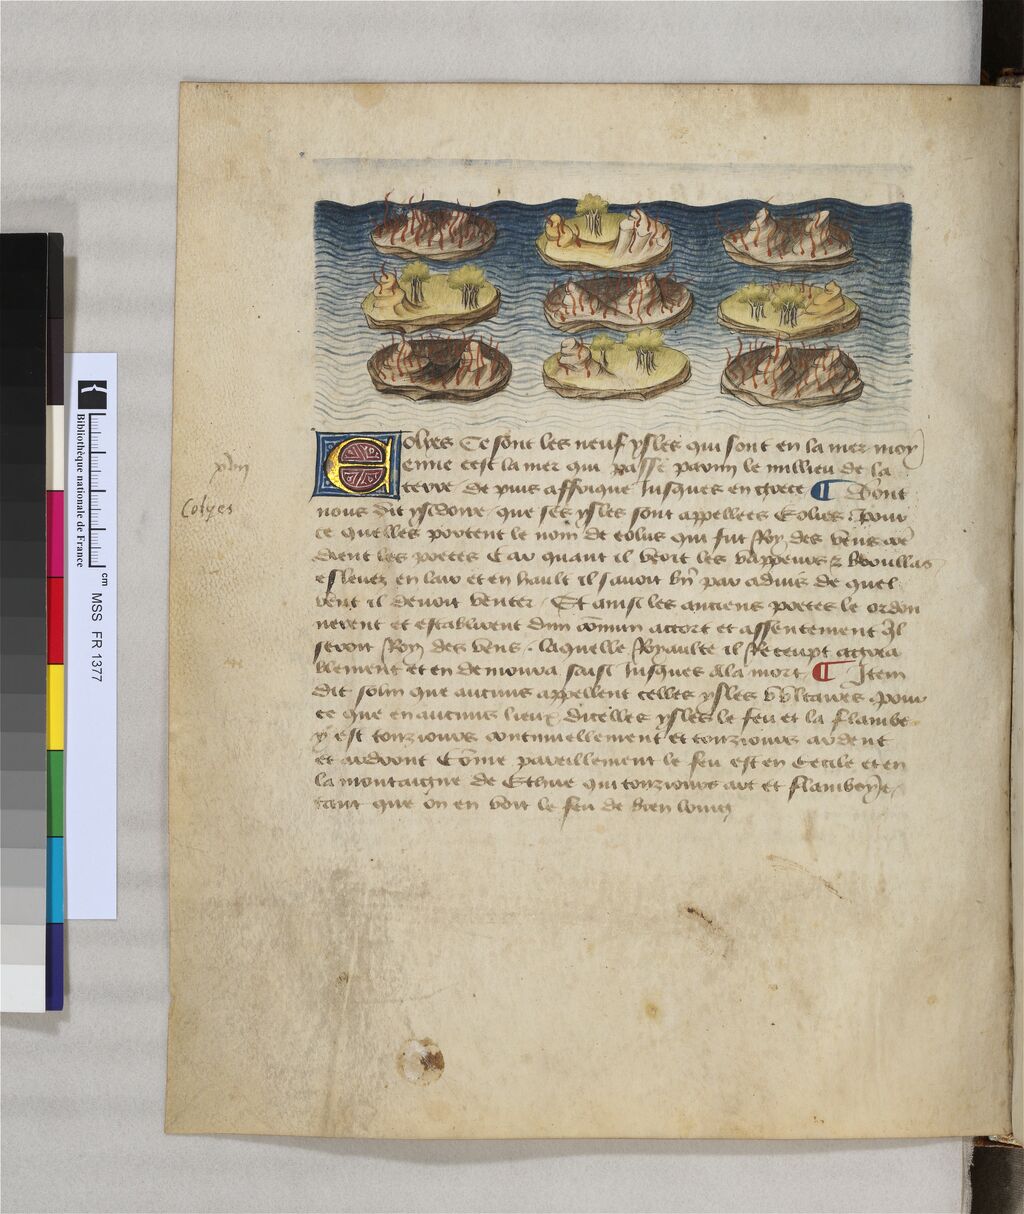 Bibliothèque nationale de France
cm
MSS FR 1377
Eolyes
Eolyes Ce sont les neuf ysles qui sont en la mer moy
enne cest la mer qui passe parmi le millieu de la
terre de puis affrique Jusques en grece ¶ Dont
nous dit ysidoire que ses ysles sont appellees Eolies pour
ce quelles portent le nom de eolus qui fut Roy des vens
dient les poetes Car quant il veoit les vappeurs & broullas
eslevez en lair et en hault il savoit par advis de quel
vent il devoit venter Et ainsi les anciens poetes le ordon
nerent et establirent dun comun accort et assentement Il
seroit Roy des vens laquelle Royaulte il Receupt aggrea
blement et en demoura saisi Jusques a la mort ¶ Item
dit solin que aucuns appellent celles ysles Vulcaires pour
ce que en aucuns lieux dicelles ysles le feu et la flambe
y est tousiours continuellement et tousiours ardent
et ardront Come pareillement le feu est en Cecile et en
la montaigne de Ethne qui tousiours art et flamboye
tant que on en voit le feu de bien loing